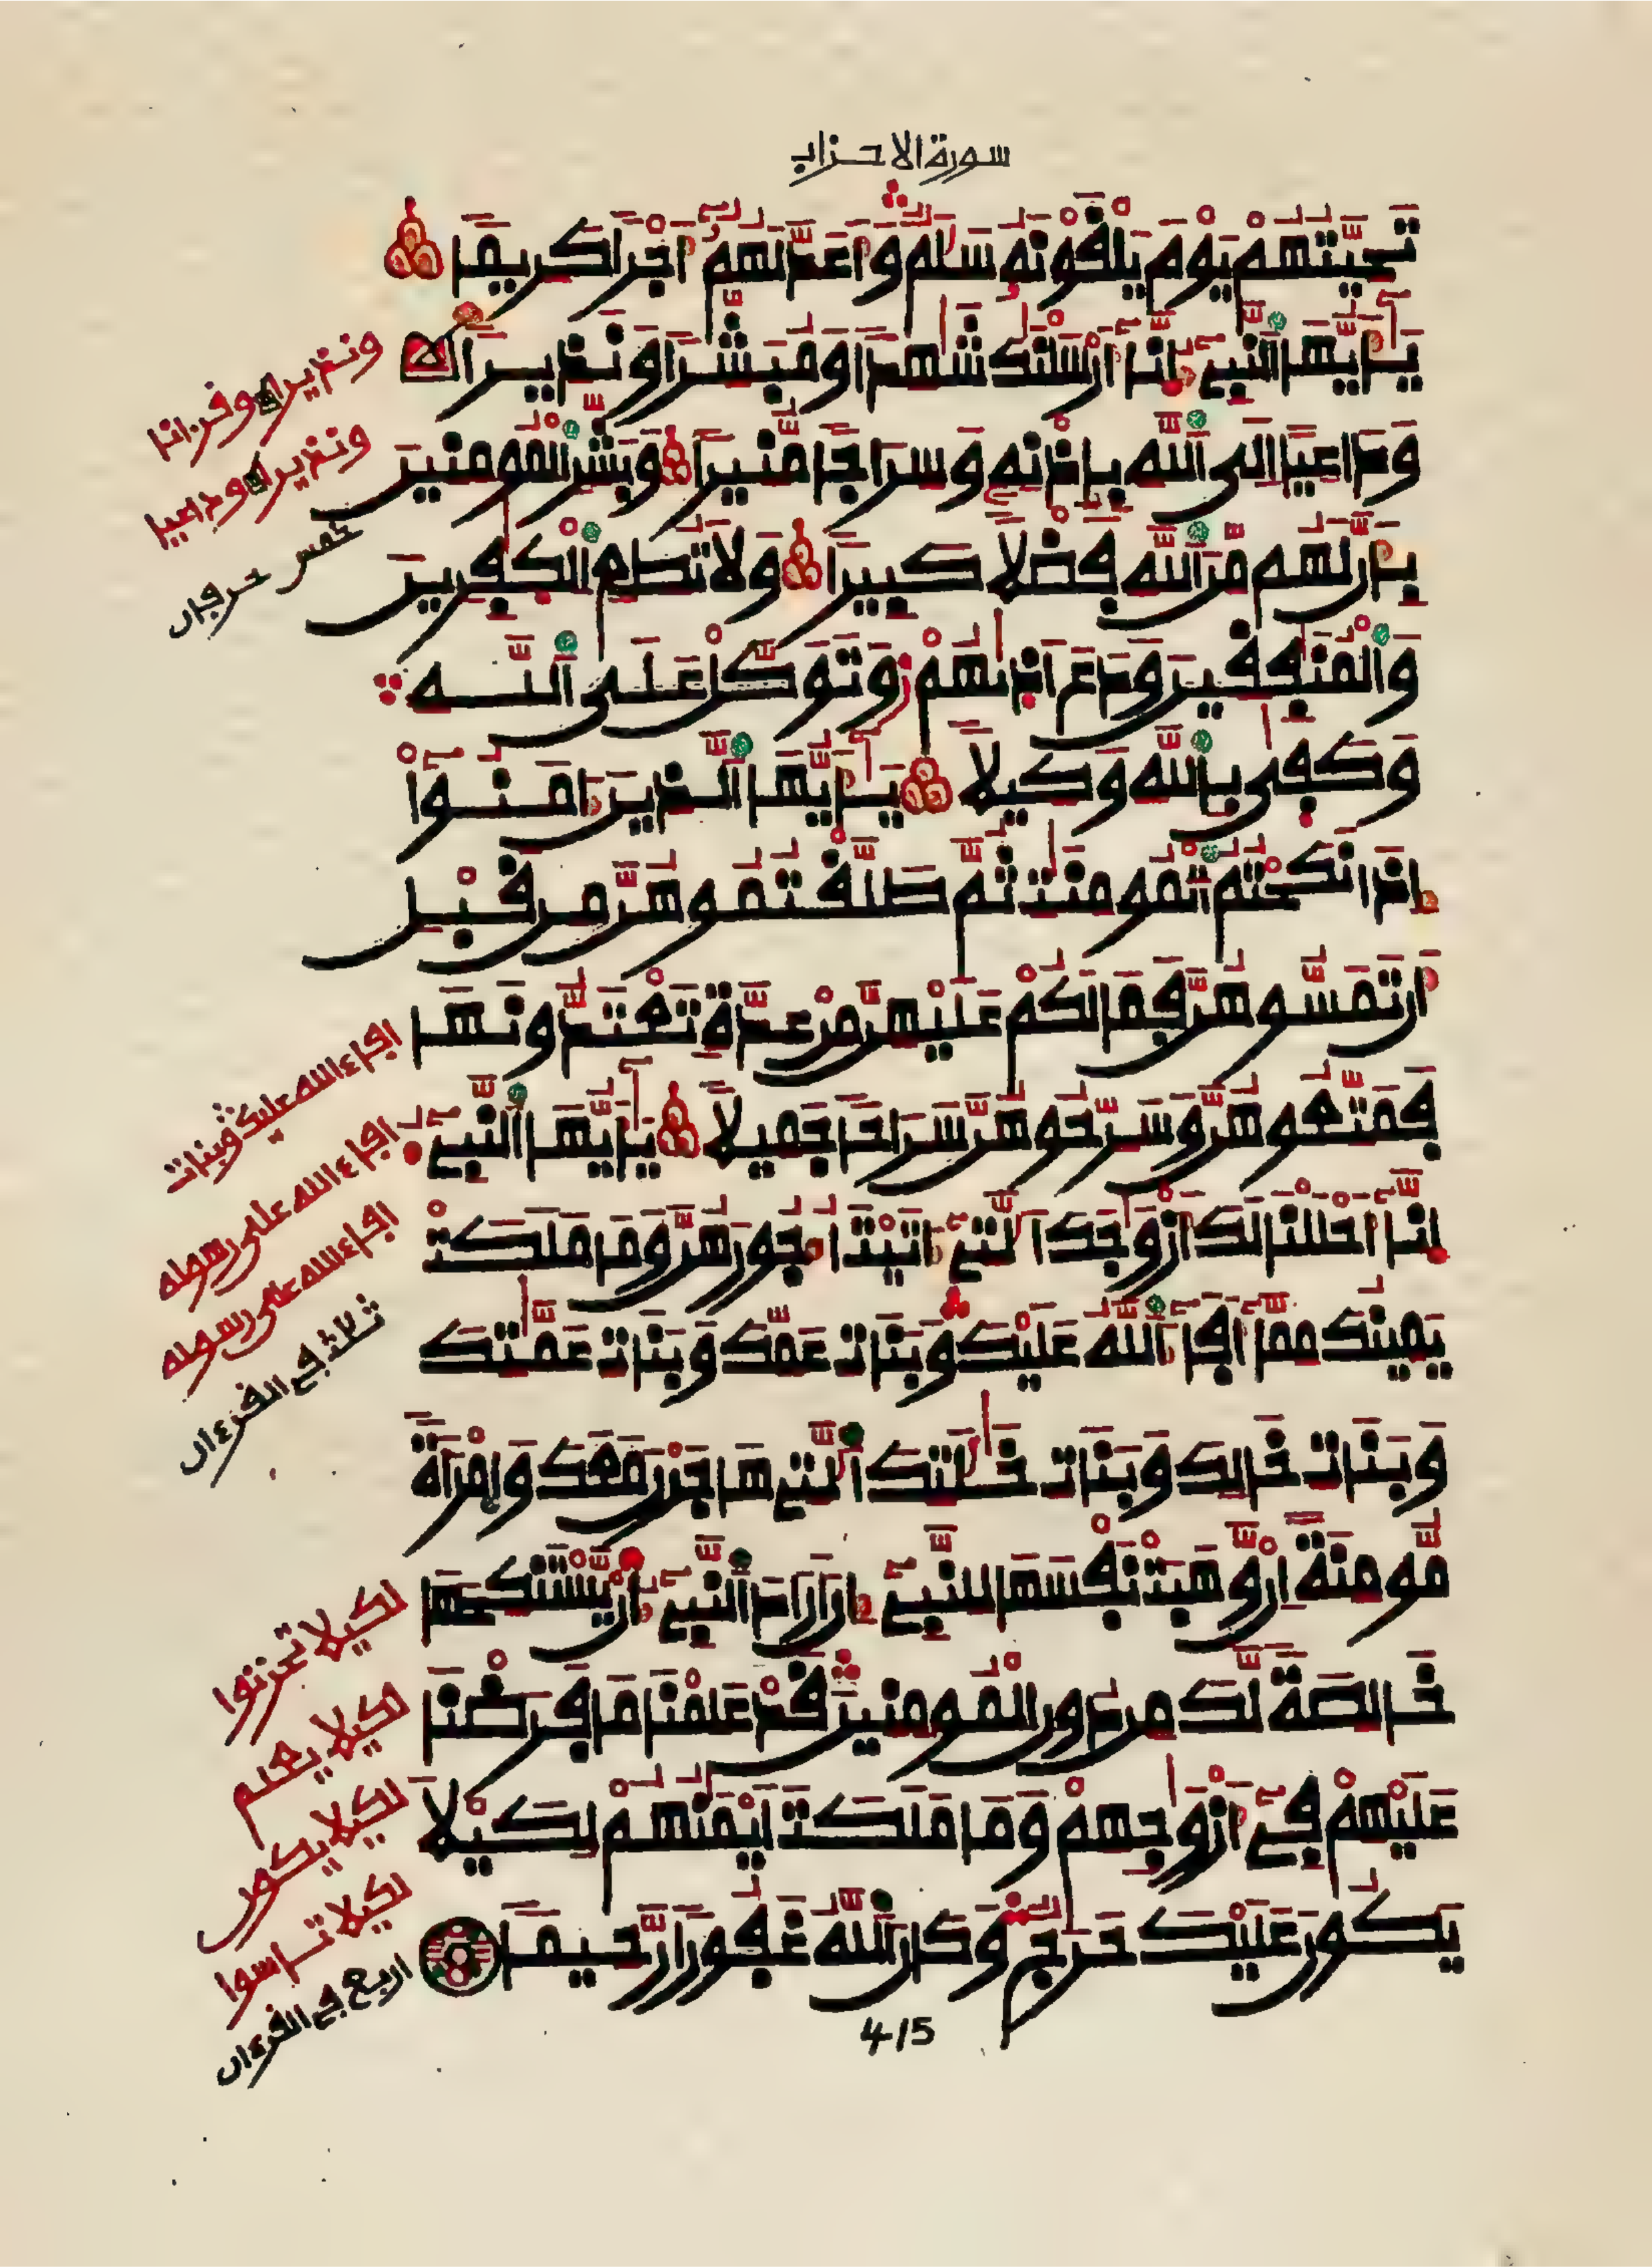 سورة الاحزاب
تَحِيَّتُهُمْ يَوْمَ يَلْقَوْنَهُ سَلَٰمٌ وَأَعَدَّ لَهُمُ أَجْرًا كَرِيمًا
يَٰأَيُّهَا ٱلنَّبِىءُ إِنَّا أَرْسَلْنَٰكَ شَٰهِدًا وَمُبَشِّرًا وَنَذِيرًا
وَدَاعِيًا إِلَى ٱللَّهِ بِإِذْنِهِ وَسِرَاجًا مُنِيرًا وَبَشِّرِ ٱلْمُومِنِينَ
بِأَنَّ لَهُم مِّنَ ٱللَّهِ فَضْلًا كَبِيرًا وَلَا تُطِعِ ٱلْكَٰفِرِينَ
وَٱلْمُنَٰفِقِينَ وَدَعَ اَذَٰىٰهُمْ وَتَوَكَّلْ عَلَى ٱللَّهِ
وَكَفَىٰ بِٱللَّهِ وَكِيلًا يَٰأَيُّهَا ٱلَّذِينَ ءَامَنُوا
إِذَا نَكَحْتُمُ ٱلْمُومِنَٰتِ ثُمَّ طَلَّقْتُمُوهُنَّ مِن قَبْلِ
أَن تَمَسُّوهُنَّ فَمَا لَكُمْ عَلَيْهِنَّ مِنْ عِدَّةٍ تَعْتَدُّونَهَا
فَمَتِّعُوهُنَّ وَسَرِّحُوهُنَّ سَرَاحًا جَمِيلًا يَٰأَيُّهَا ٱلنَّبِىءُ
إِنَّا أَحْلَلْنَا لَكَ أَزْوَٰجَكَ ٱلَّٰتِى ءَاتَيْتَ أُجُورَهُنَّ وَمَا مَلَكَتْ
يَمِينُكَ مِمَّا أَفَاءَ ٱللَّهُ عَلَيْكَ وَبَنَاتِ عَمِّكَ وَبَنَاتِ عَمَّٰتِكَ
وَبَنَاتِ خَالِكَ وَبَنَاتِ خَٰلَٰتِكَ ٱلَّٰتِى هَاجَرْنَ مَعَكَ وَٱمْرَأَةً
مُّومِنَةً إِنْ وَّهَبَتْ نَفْسَهَا لِلنَّبِىءِ إِنْ أَرَادَ ٱلنَّبِىءُ أَنْ يَّسْتَنكِحَهَا
خَالِصَةً لَّكَ مِن دُونِ ٱلْمُومِنِينَ قَدْ عَلِمْنَا مَا فَرَضْنَا
عَلَيْهِمْ فِى أَزْوَٰجِهِمْ وَمَا مَلَكَتَ اَيْمَٰنُهُمْ لِكَيْلَا
يَكُونَ عَلَيْكَ حَرَجٌ وَكَانَ ٱللَّهُ غَفُورًا رَّحِيمًا
415
ونذيرا وقرءانا
ونذيرا وداعيا
خمس حرفان
افاء الله عليك وبنات
افاء الله على رسوله
افاء الله على رسوله
ثلاث في القرءان
لكيلا تحزنوا
لكيلا يعلم
لكيلا يكون
لكيلا تاسوا
اربع في القرءان